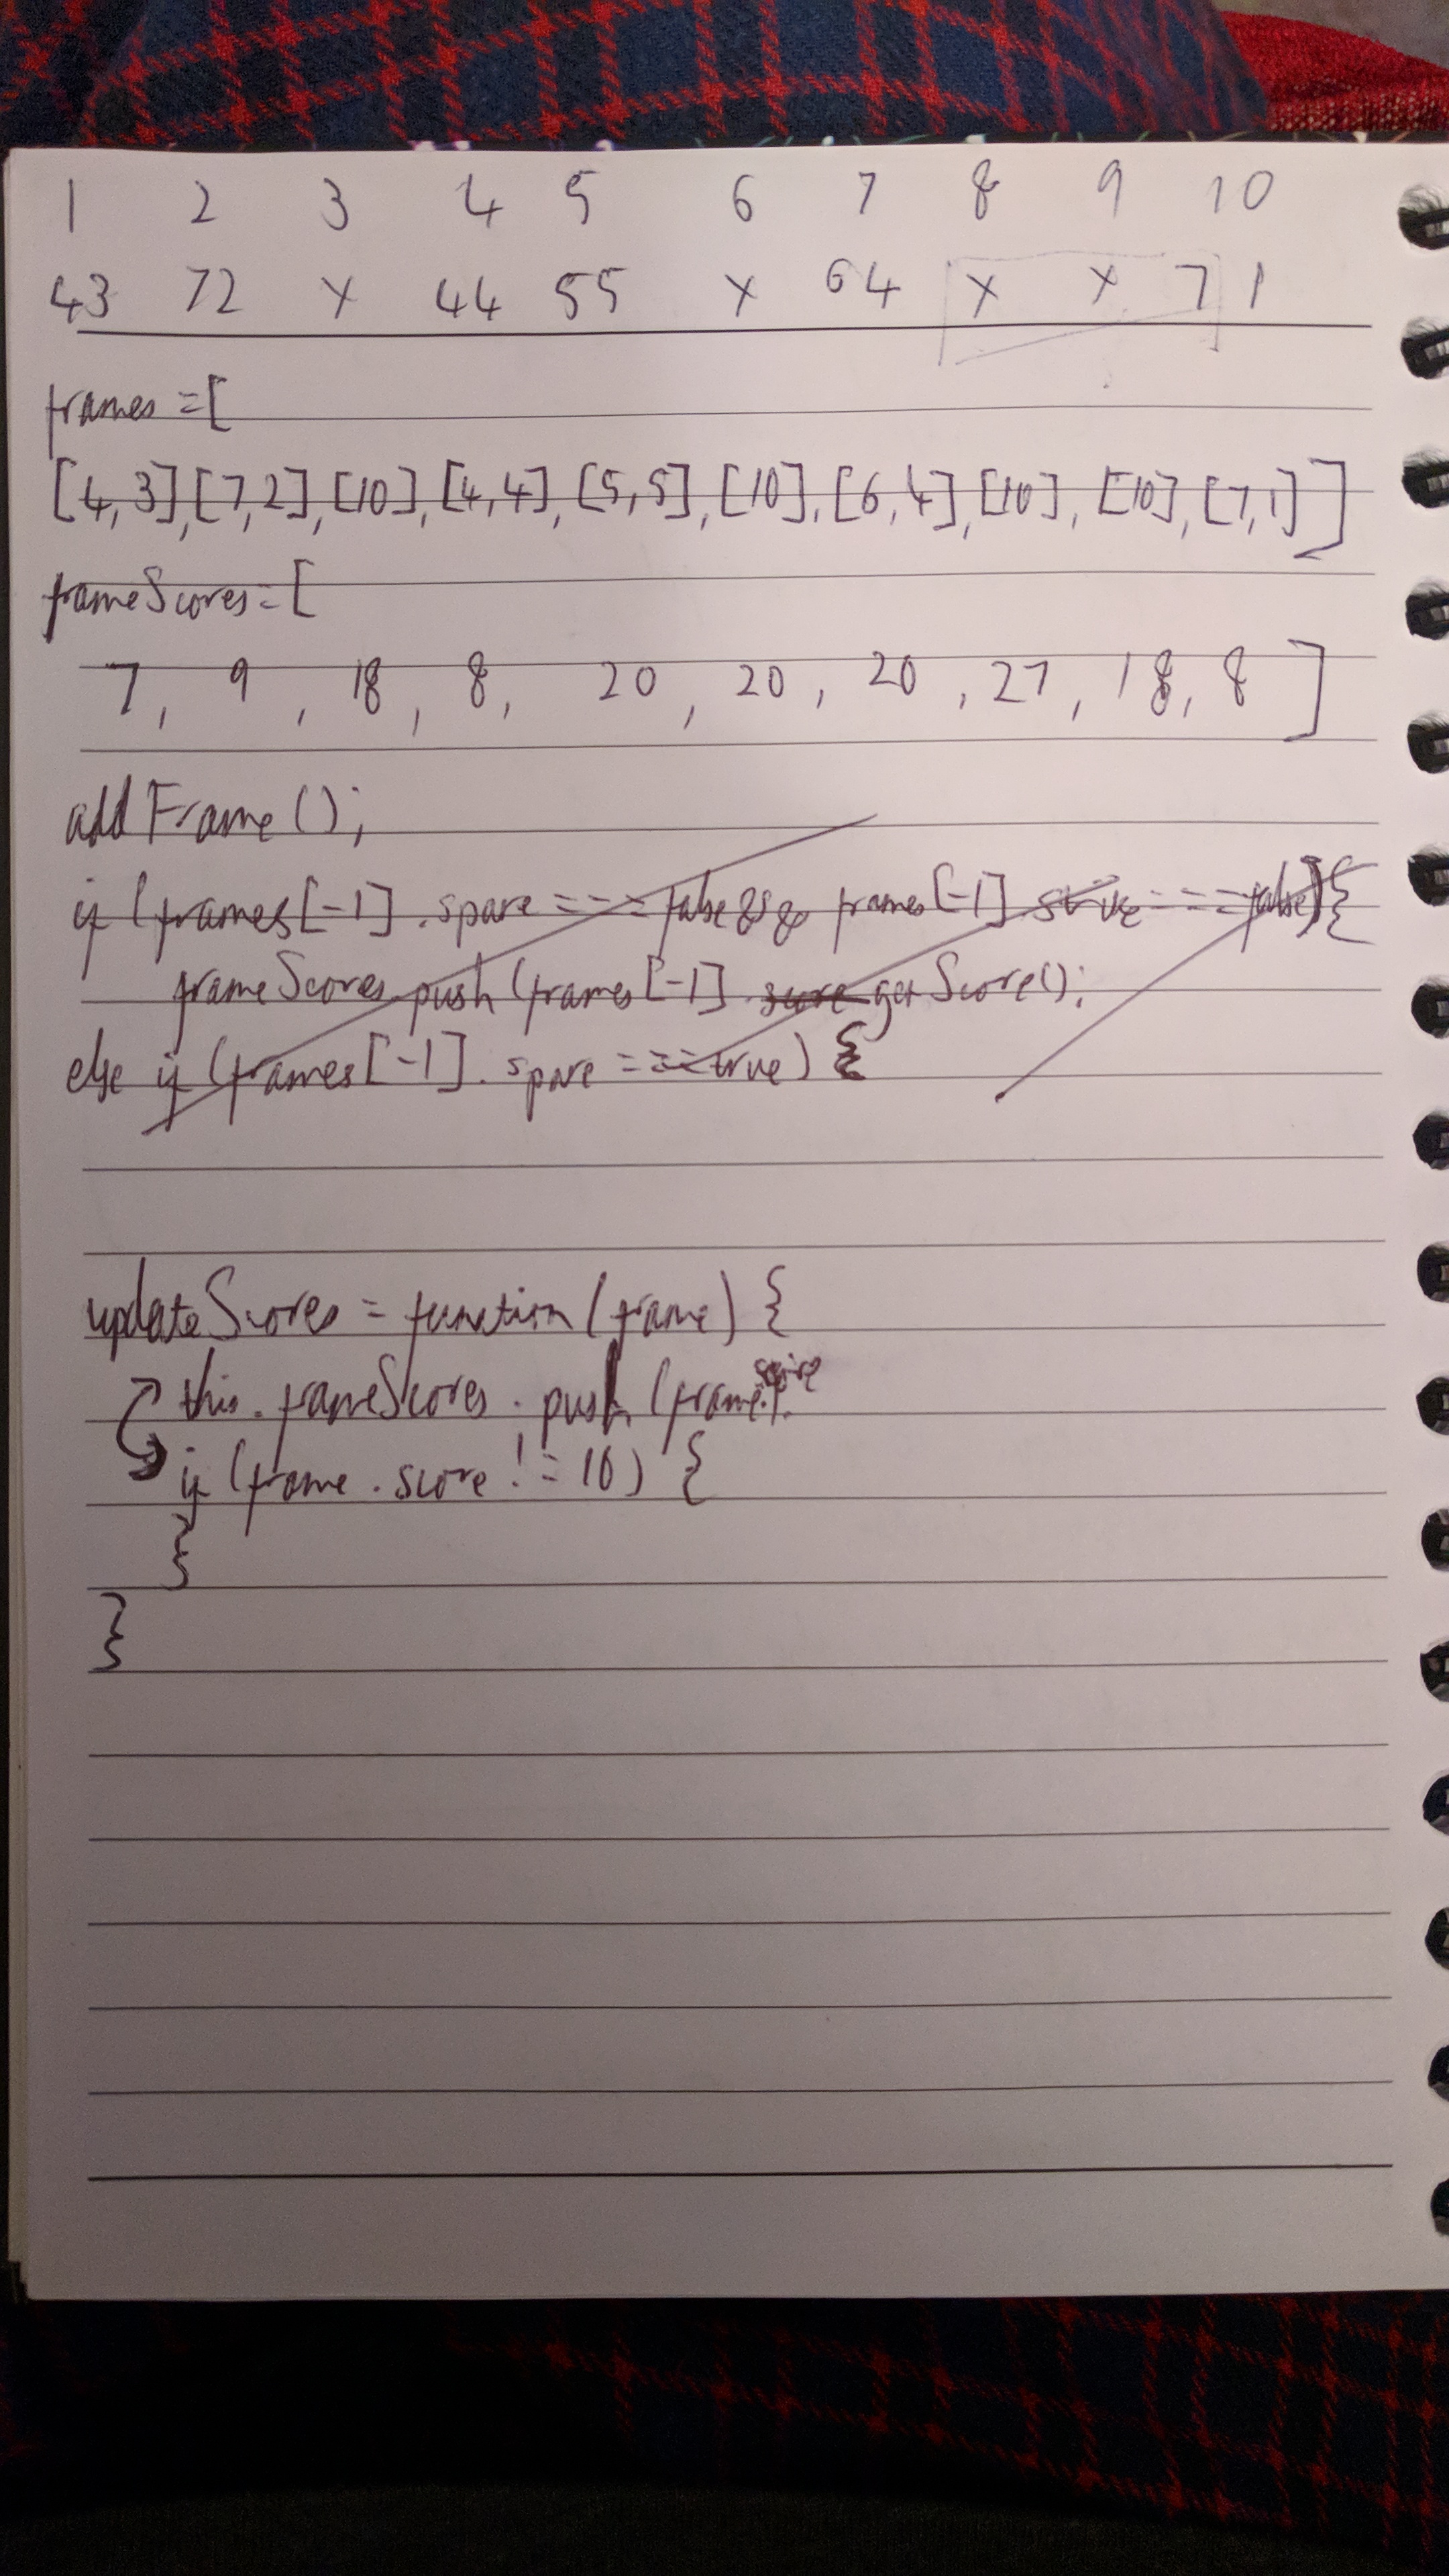 1 2 3 4 5 6 7 8 9 10
43 72 X 44 55 X 64 X X 71
frames = [
[4,3],[7,2],[10],[4,4],[5,5],[10],[6,4],[10],[10],[7,1]]
frameScores = [
7, 9, 18, 8, 20, 20, 20, 27, 18, 8]
addFrame();
if (frames[-1].spare === false && frames[-1] === false) {
frameScores.push(frames[-1].score getScore();
else if (frames[-1].spare === true) {
updateScores = function(frame) {
this.frameScores.push(frame.score).
if (frame.score != 10) {
}
}